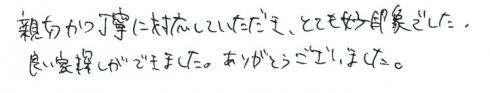 親切かつ丁寧に対応していただき、とても好印象でした。
良い家探しができました。ありがとうございました。